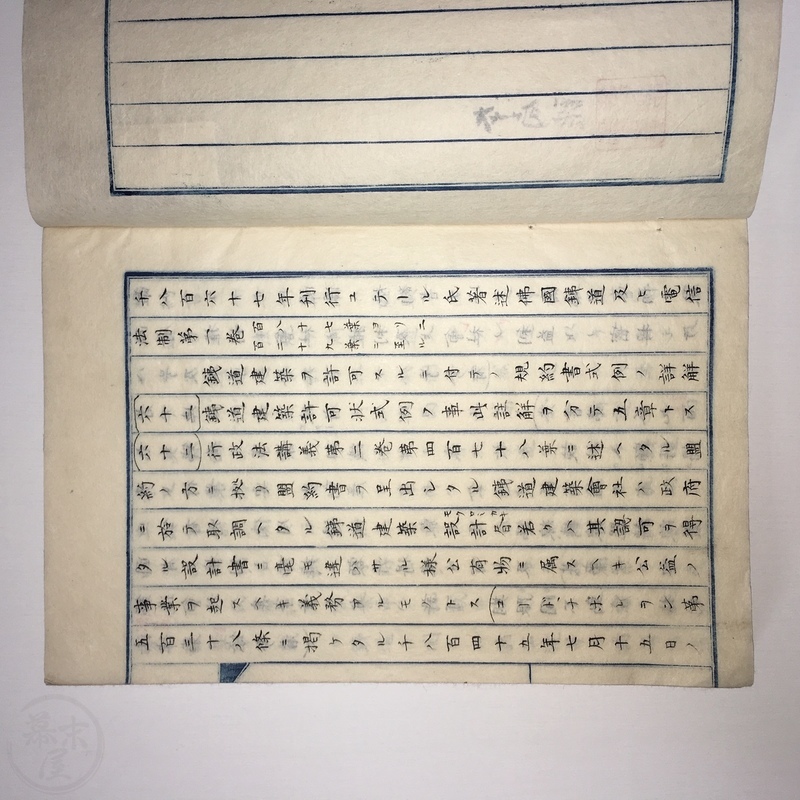 千八百六十七年刊行エテール氏著述佛國銕道及ヒ電信
法制第一巻百八十七葉ヨリ百二十九葉ニ至ル
銕道建築ヲ許可スルニ付テノ規約書式例ノ詳解
六十二 銕道建築許可状式例ノ事此註解ヲ分テ五章トス
六十二 行政法講義第二巻第四百七十八葉ニ述ヘタル盟
約ノ方ニ拠リ盟約書ヲ呈出シタル銕道建築會社ハ政府
ニ於テ取調ヘタル銕道建築ノ設計書若クハ其認可ヲ得
タル設計書ニ毫モ違ハサル様公有物ニ属スヘキ公益ノ
事業ヲ起スヘキ義務アルモノトス 第
五百三十八條ニ掲ケタル千八百四十五年七月十五日ノ
幕末屋